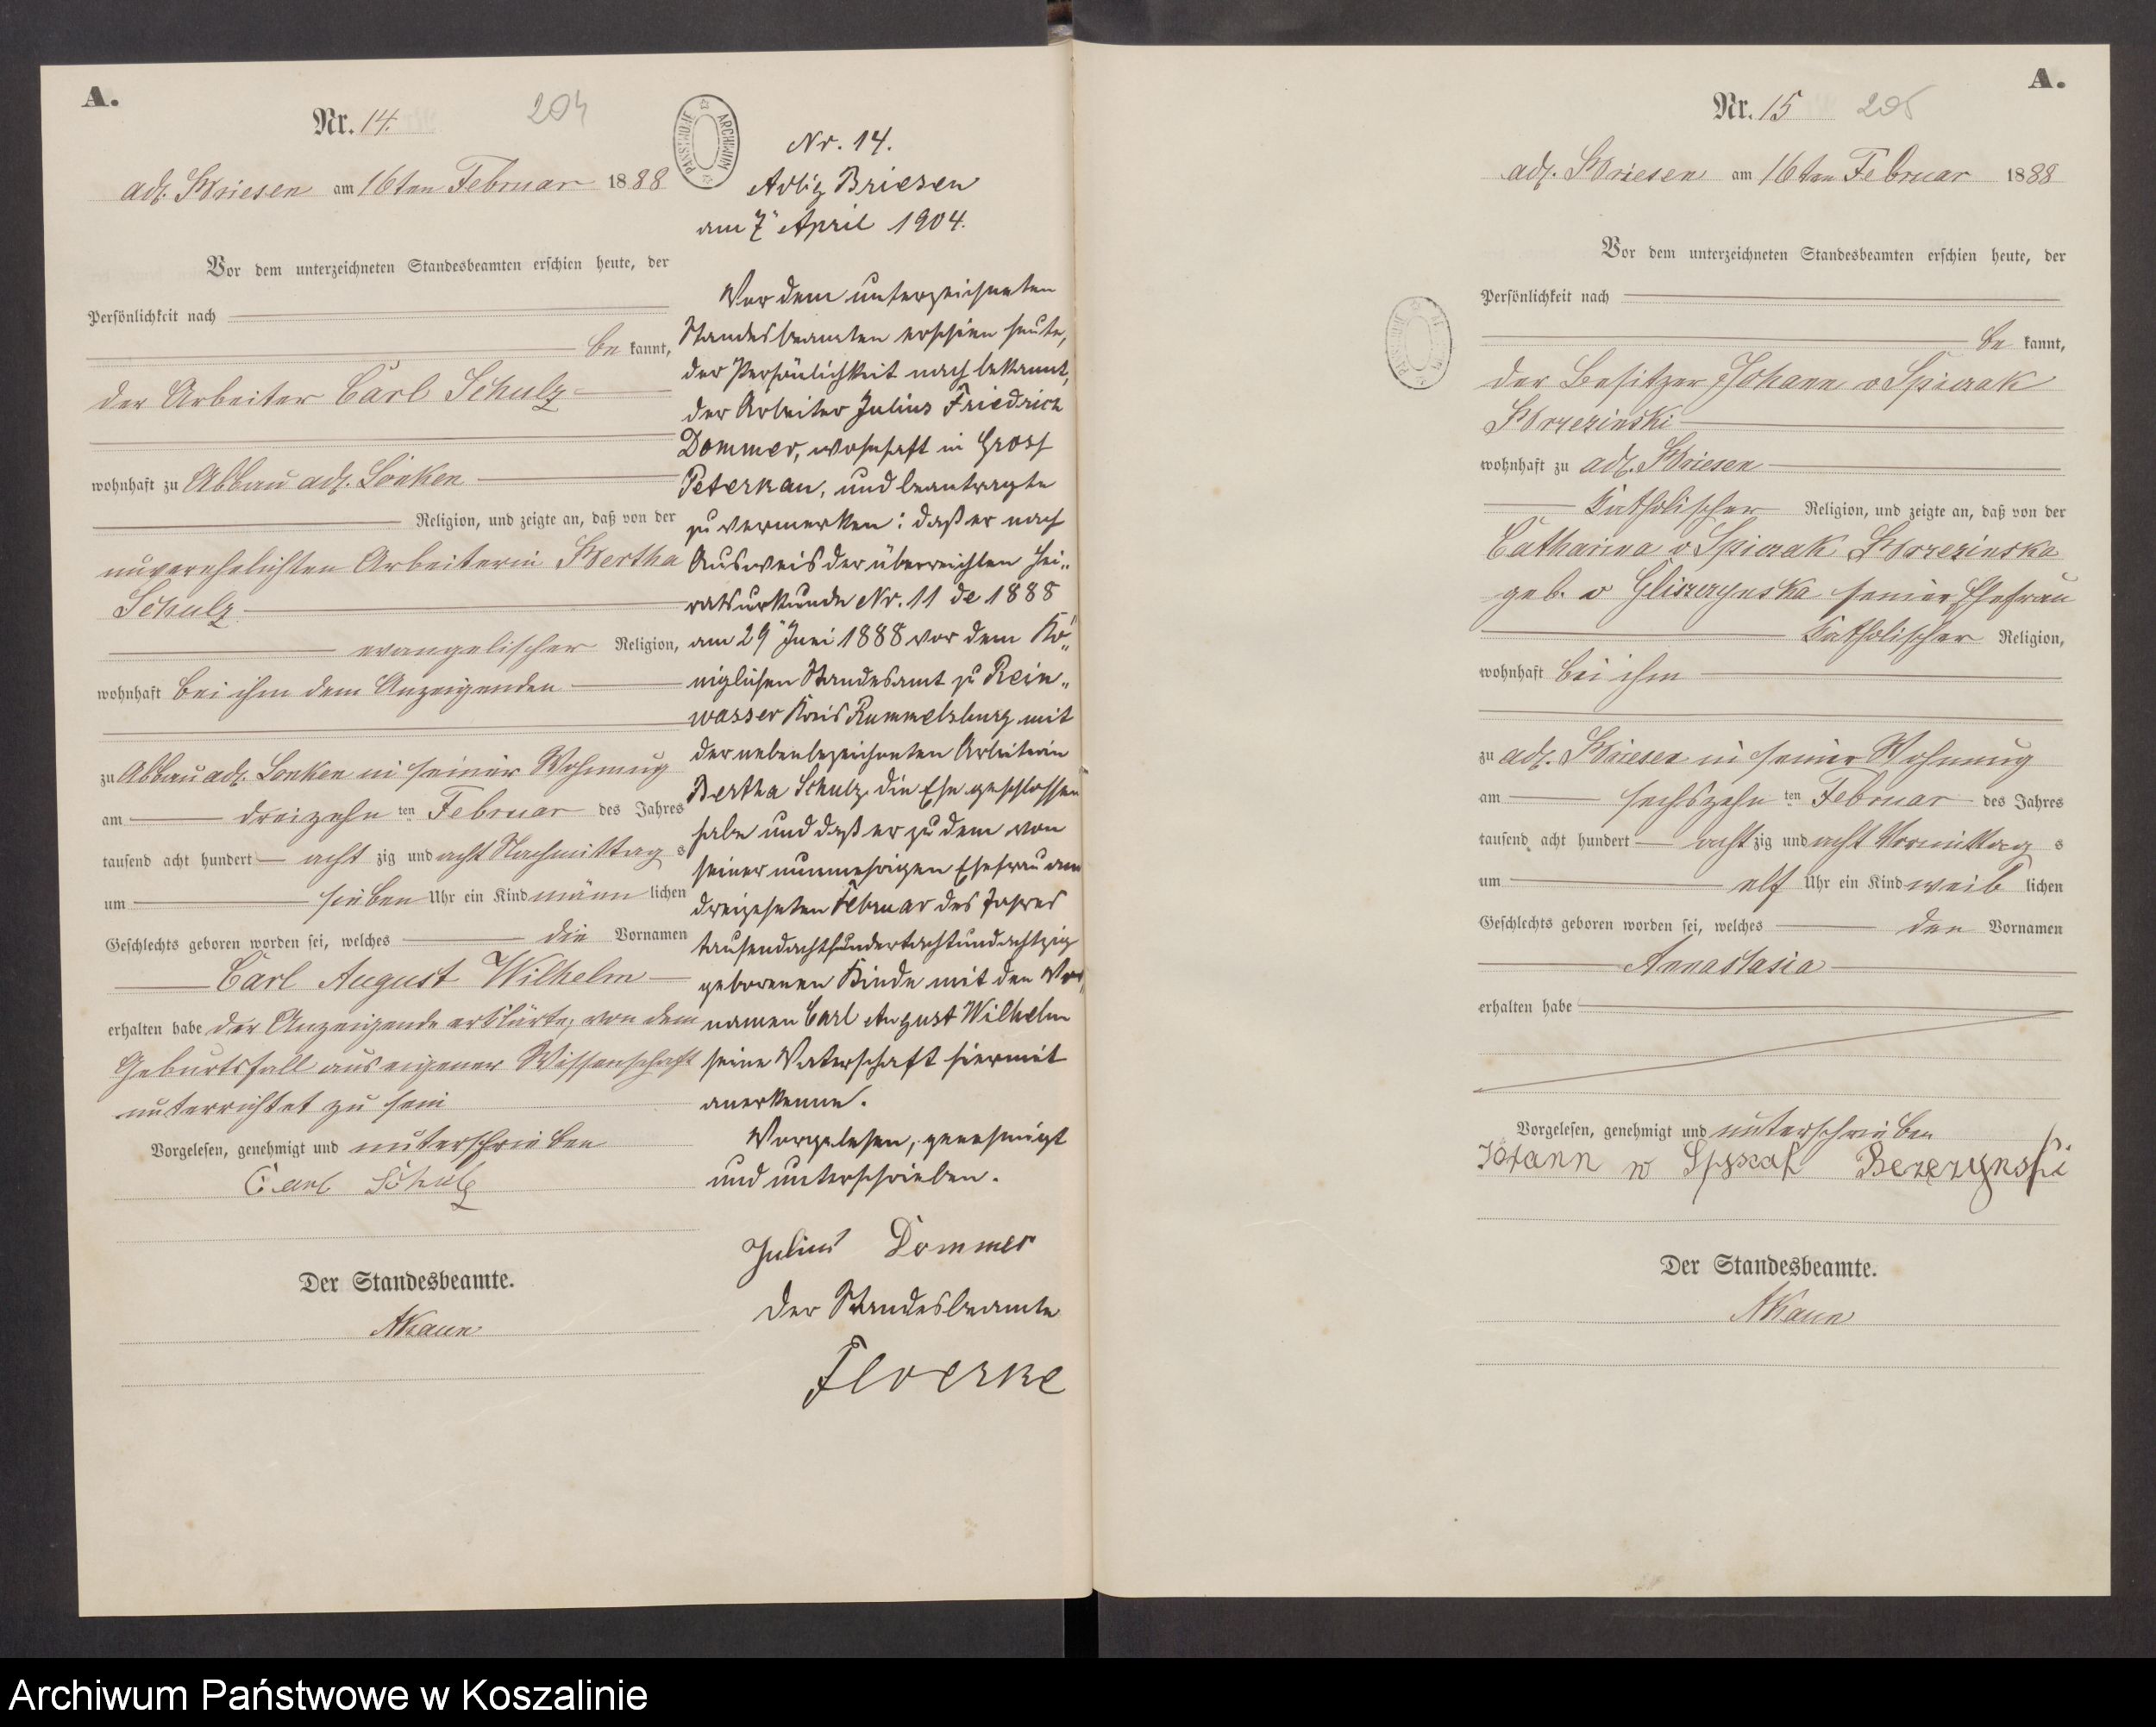 A.
Nr. 14.
204
adl. Briesen am 16ten Februar 1888
Vor dem unterzeichneten Standesbeamten erschien heute, der
Persönlichkeit nach
be kannt,
der Arbeiter Carl Schulz
wohnhaft zu Abbau adl. Lonken
Religion, und zeigte an, daß von der
unverehelichten Arbeiterin Bertha
Schulz
evangelischer Religion,
wohnhaft bei ihm dem Anzeigenden
zu Abbau adl. Lonken in seiner Wohnung
am dreizehn ten Februar des Jahres
tausend acht hundert acht zig und acht Nachmittag s
um sieben Uhr ein Kind männ lichen
Geschlechts geboren worden sei, welches die Vornamen
Carl August Wilhelm
erhalten habe der Anzeigende erklärte, von dem
Geburtsfall aus eigener Wissenschaft
unterrichtet zu sein
Vorgelesen, genehmigt und unterschrieben
Carl Schulz
Der Standesbeamte.
AKaun
Nr. 14.
Adlig Briesen
am 7ᵗ April 1904.
Vor dem unterzeichneten
Standesbeamten erschien heute,
der Persönlichkeit nach bekannt,
der Arbeiter Julius Friedrich
Dommer, wohnhaft in Gross
Peterkau, und beantragte
zu vermerken: daß er nach
Ausweis der überreichten Hei„
ratsurkunde Nr. 11 de 1888
am 29ᵗ Juni 1888 vor dem Kö„
niglichen Standesamt zu Rein„
wasser Kreis Rummelsburg mit
der nebenbezeichneten Arbeiterin
Bertha Schulz die Ehe geschlossen
habe und daß er zu dem von
seiner nunmehrigen Ehefrau am
dreizehnten Februar des Jahres
tausendachthundertachtundachtzig
geborenen Kinde mit den Vor„
namen Carl August Wilhelm
seine Vaterschaft hiermit
anerkenne.
Vorgelesen, genehmigt
und unterschrieben.
Julius Dommer
Der Standesbeamte
Floerke
A.
Nr. 15
205
adl. Briesen am 16ten Februar 1888
Vor dem unterzeichneten Standesbeamten erschien heute, der
Persönlichkeit nach
be kannt,
der Besitzer Johann v Spiczak
Brzezinski
wohnhaft zu adl. Briesen
Katholischer Religion, und zeigte an, daß von der
Catharina v Spiczak Brzezinska
geb. v Gliszczynska seiner Ehefrau
Katholischer Religion,
wohnhaft bei ihm
zu adl. Briesen in seiner Wohnung
am sechszehn ten Februar des Jahres
tausend acht hundert acht zig und acht Vormittag s
um elf Uhr ein Kind weib lichen
Geschlechts geboren worden sei, welches den Vornamen
Annastasia
erhalten habe
Vorgelesen, genehmigt und unterschrieben
Johann v Spszak Berezynski
Der Standesbeamte.
AKaun
Archiwum Państwowe w Koszalinie